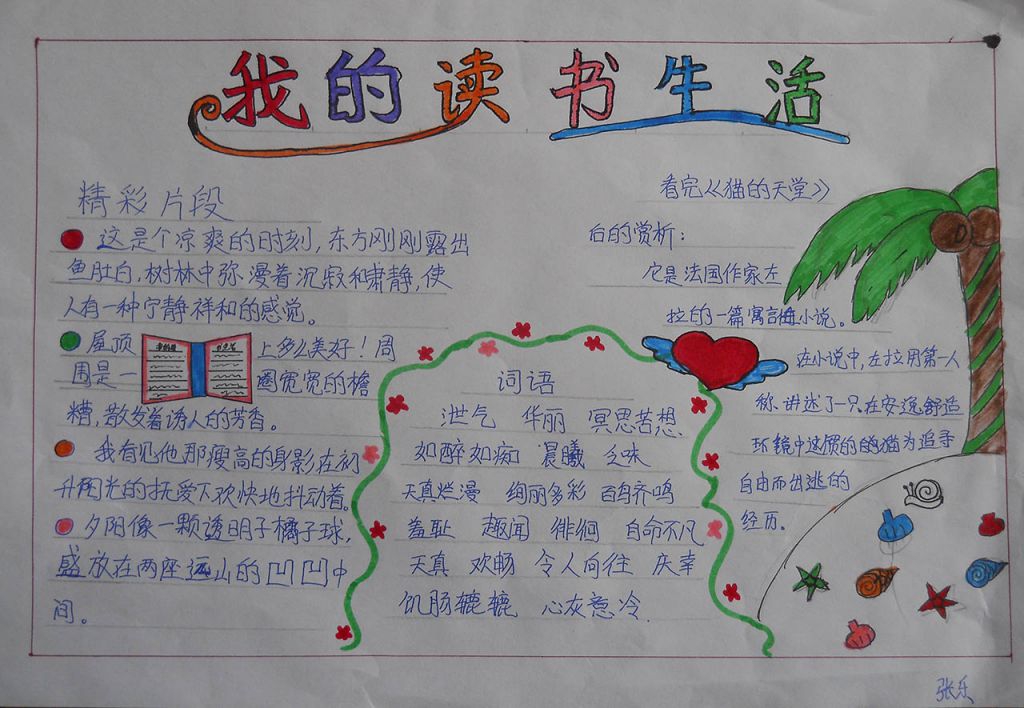 我的读书生活
精彩片段
这是个凉爽的时刻,东方刚刚露出
鱼肚白,树林中弥漫着沉寂和肃静,使
人有一种宁静祥和的感觉。
屋顶上多么美好!周
围是一圈宽宽的檐
糟,散发着诱人的芳香。
我看见他那瘦高的身影在初
升阳光的抚爱下欢快地抖动着。
夕阳像一颗透明子橘子球,
盛放在两座远山的凹凹中
间。
词语
泄气 华丽 冥思苦想
如醉如痴 晨曦 乏味
天真烂漫 绚丽多彩 百鸟齐鸣
羞耻 趣闻 徘徊 自命不凡
天真 欢畅 令人向往 庆幸
饥肠辘辘 心灰意冷.
看完《猫的天堂》
后的赏析:
它是法国作家左
拉的一篇寓言小说。
在小说中,左拉用第一人
称、讲述了一只在安逸舒适
环镜中的猫为追寻
自由而出逃的
经历。
张乐